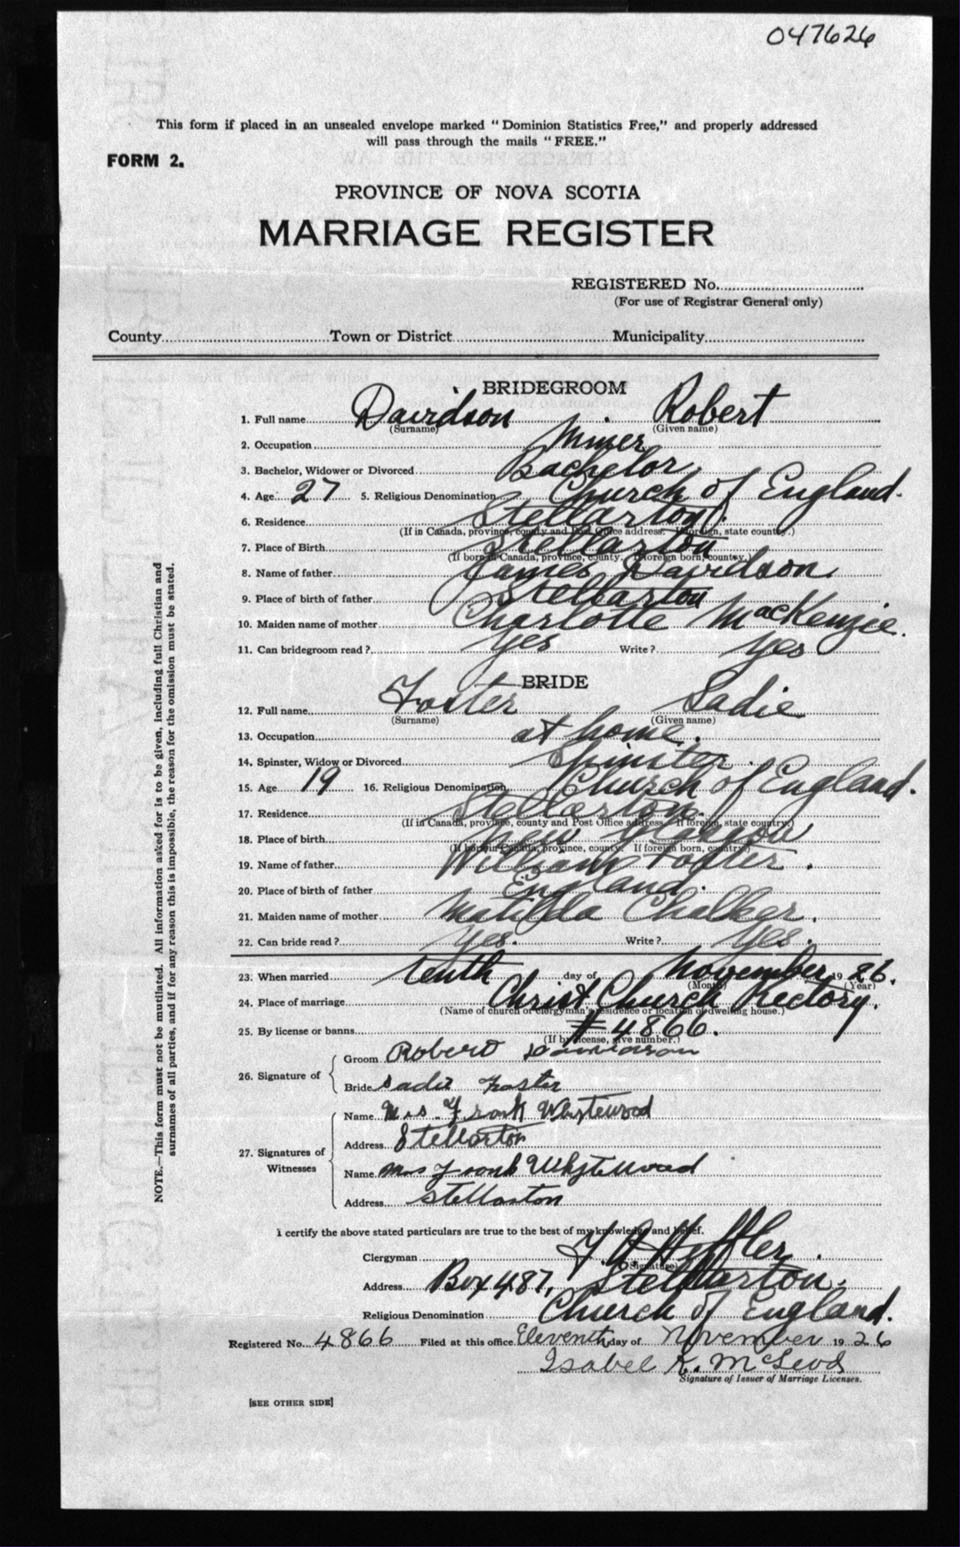 047626
This form if placed in an unsealed envelope marked "Dominion Statistics Free," and properly addressed
will pass through the mails "FREE."
FORM 2.
PROVINCE OF NOVA SCOTIA
MARRIAGE REGISTER
REGISTERED No.
(For use of Registrar General only)
County Town or District Municipality
BRIDEGROOM
1. Full name Davidson Robert
(Surname) (Given name)
2. Occupation Miner
3. Bachelor, Widower or Divorced Bachelor
4. Age 27 5. Religious Denomination Church of England.
6. Residence Stellarton
(If in Canada, province, county and Post Office address. If foreign, state country.)
7. Place of Birth Stellarton
(If born in Canada, province, county. If foreign born, country.)
8. Name of father James Davidson.
9. Place of birth of father Stellarton
10. Maiden name of mother Charlotte MacKenzie.
11. Can bridegroom read? Yes Write? Yes
BRIDE
12. Full name Foster Sadie
(Surname) (Given name)
13. Occupation at home.
14. Spinster, Widow or Divorced Spinster
15. Age 19 16. Religious Denomination Church of England.
17. Residence Stellarton.
(If in Canada, province, county and Post Office address. If foreign, state country)
18. Place of birth New Glasgow
(If born in Canada, province, county. If foreign born, country)
19. Name of father William Foster.
20. Place of birth of father England.
21. Maiden name of mother Matilda Chalker.
22. Can bride read? Yes. Write? Yes.
23. When married tenth day of November 1926.
(Month) (Year)
24. Place of marriage Christ Church Rectory.
(Name of church or clergyman's residence or location of dwelling house.)
25. By license or banns # 4866.
(If by license, give number.)
26. Signature of Groom Robert Davidson
Bride Sadie Foster
27. Signatures of Witnesses Name Mrs. Frank Whytewood
Address Stellarton
Name Mrs Frank Whytewood
Address Stellarton
I certify the above stated particulars are true to the best of my knowledge and belief.
Clergyman Heffler.
(Signature)
Address Box 487, Stellarton.
Religious Denomination Church of England.
Registered No. 4866 Filed at this office Eleventh day of November 1926
Isabel K. McLeod
Signature of Issuer of Marriage Licenses.
[SEE OTHER SIDE]
NOTE.—This form must not be mutilated. All information asked for is to be given, including full Christian and
surnames of all parties, and if for any reason this is impossible, the reason for the omission must be stated.